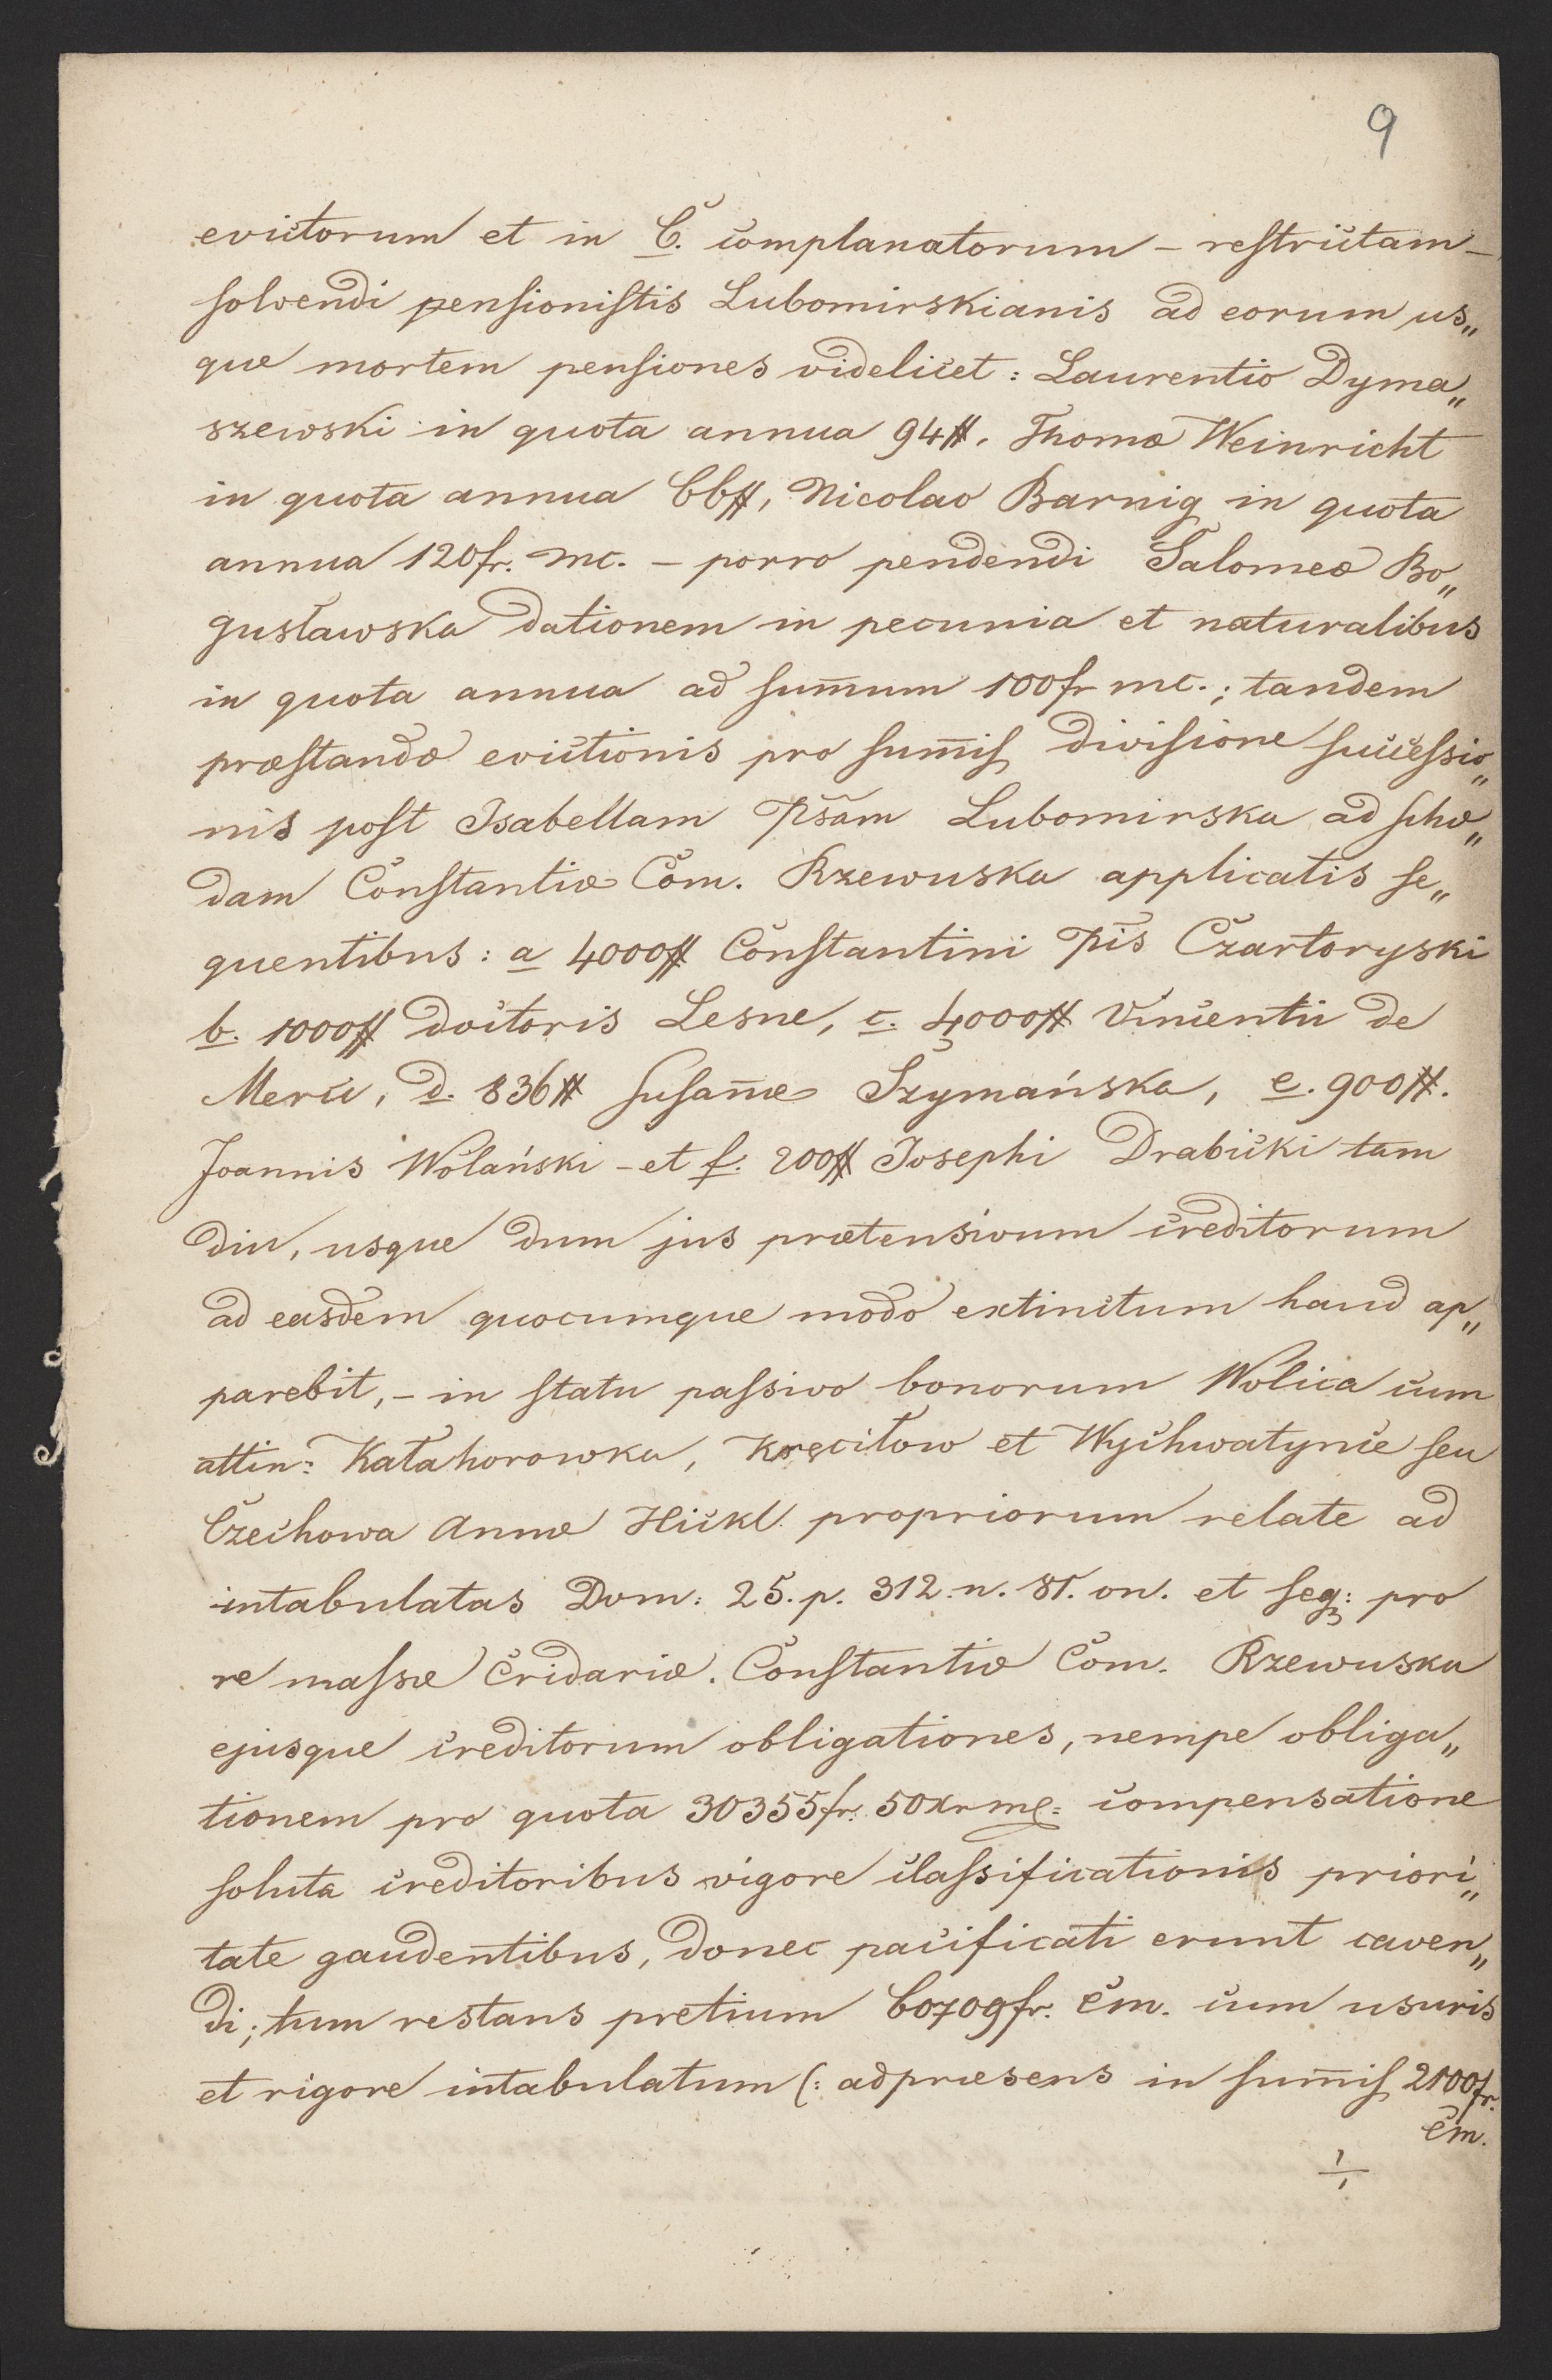 9
evictorum et in C. complanatorum – restrictam –
solvendi pensionistis Lubomirskianis ad eorum us„
que mortem pensiones videlicet: Laurentio Dyma„
szewski in quota annua 94#. Thomæ Weinricht
in quota annua 66#, Nicolao Barnig in quota
annua 120fr. mc. – porro pendendi Salomeæ Bo„
gusławska dationem in pecunia et naturalibus
in quota annua ad sum̄um 100fr mc.; tandem
præstandæ evictionis pro sum̄is divisione successio„
nis post Isabellam Pśam Lubomirska ad sche„
dam Constantiæ Com. Rzewuska applicatis se„
quentibus: a 4000# Constantini Pis Czartoryski
b. 1000# doctoris Lesne, c. 4000# Vincentii de
Merci, d. 836# Susan̄æ Szymańska, e. 900#.
Joannis Wolański – et f. 200# Josephi Drabicki tam
diu, usque dum jus prætensivum creditorum
ad easdem quocumque modo extinctum haud ap„
parebit, – in statu passivo bonorum Wolica cum
attin: Katahorowka, Kręciłow et Wychwatynce seu
Czechowa Annæ Hickl propriorum relate ad
intabulatas Dom: 25. p. 312. n. 81. on. et seq: pro
re massæ Cridariæ. Constantiæ Com. Rzewuska
ejusque creditorum obligationes, nempe obliga„
tionem pro quota 30355fr. 50xr mc: compensatione
soluta creditoribus vigore classificationis priori„
tate gaudentibus, donec pacificati erunt caven„
di; tum restans pretium 60709fr. Cm. cum usuris
et rigore intabulatum (: ad præsens in sum̄is 2100fr.
Cm.